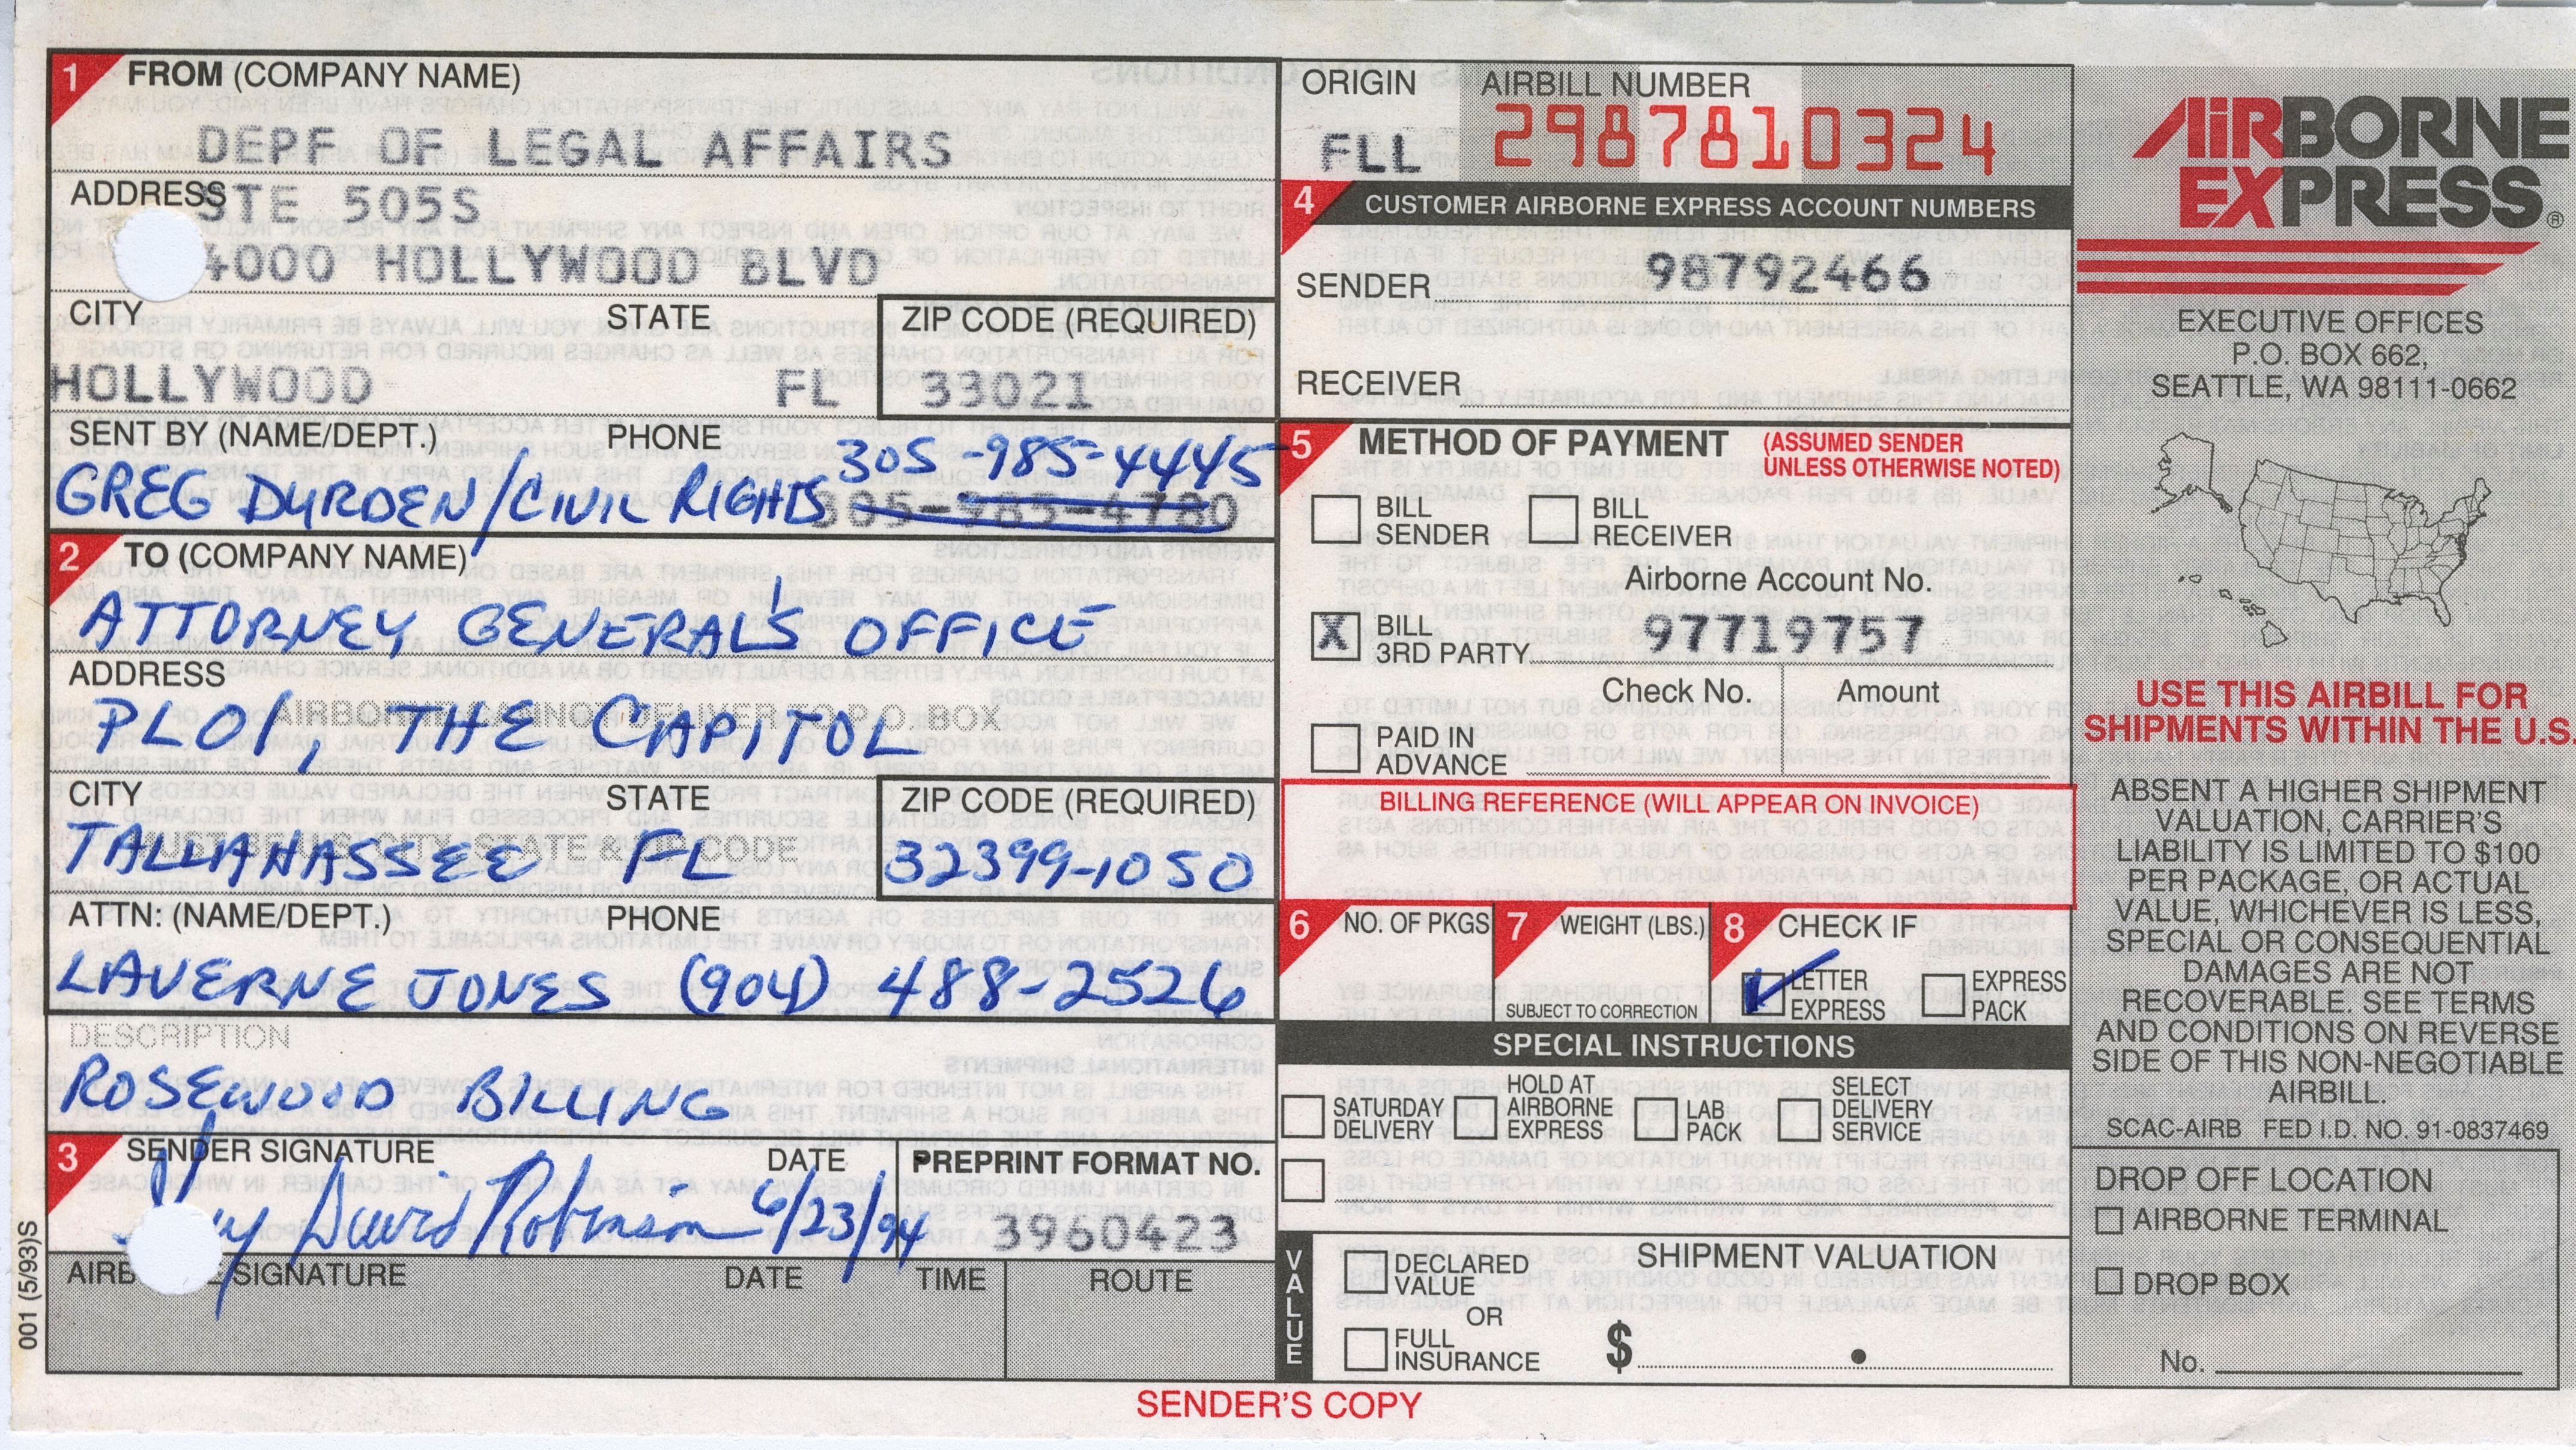 1 FROM (COMPANY NAME)
DEPF OF LEGAL AFFAIRS
ADDRESS STE 505S
4000 HOLLYWOOD BLVD
CITY STATE ZIP CODE (REQUIRED)
HOLLYWOOD FL 33021
SENT BY (NAME/DEPT.) PHONE
305-985-4445
GREG DURDEN/CIVIL RIGHTS 305-985-4780
2 TO (COMPANY NAME)
ATTORNEY GENERAL'S OFFICE
ADDRESS
AIRBORNE CANNOT DELIVER TO P.O. BOX
PL01, THE CAPITOL
CITY STATE ZIP CODE (REQUIRED)
MUST BE US CITY, STATE & ZIP CODE
TALLAHASSEE FL 32399-1050
ATTN: (NAME/DEPT.) PHONE
LAVERNE JONES (904) 488-2526
DESCRIPTION
ROSEWOOD BILLING
3 SENDER SIGNATURE DATE PREPRINT FORMAT NO.
David Robinson 6/23/94 3960423
SIGNATURE DATE TIME ROUTE
001 (5/93)S
ORIGIN AIRBILL NUMBER
FLL 2987810324
4 CUSTOMER AIRBORNE EXPRESS ACCOUNT NUMBERS
SENDER 98792466
RECEIVER
5 METHOD OF PAYMENT (ASSUMED SENDER
UNLESS OTHERWISE NOTED)
BILL SENDER BILL RECEIVER
Airborne Account No.
X BILL 3RD PARTY 97719757
Check No. Amount
PAID IN ADVANCE
BILLING REFERENCE (WILL APPEAR ON INVOICE)
6 NO. OF PKGS 7 WEIGHT (LBS.) 8 CHECK IF
SUBJECT TO CORRECTION LETTER EXPRESS EXPRESS PACK
SPECIAL INSTRUCTIONS
SATURDAY DELIVERY HOLD AT AIRBORNE EXPRESS LAB PACK SELECT DELIVERY SERVICE
VALUE
SHIPMENT VALUATION
DECLARED VALUE
OR
FULL INSURANCE $ .
SENDER'S COPY
AIRBORNE
EXPRESS®
EXECUTIVE OFFICES
P.O. BOX 662,
SEATTLE, WA 98111-0662
USE THIS AIRBILL FOR
SHIPMENTS WITHIN THE U.S.
ABSENT A HIGHER SHIPMENT
VALUATION, CARRIER'S
LIABILITY IS LIMITED TO $100
PER PACKAGE, OR ACTUAL
VALUE, WHICHEVER IS LESS,
SPECIAL OR CONSEQUENTIAL
DAMAGES ARE NOT
RECOVERABLE. SEE TERMS
AND CONDITIONS ON REVERSE
SIDE OF THIS NON-NEGOTIABLE
AIRBILL.
SCAC-AIRB FED I.D. NO. 91-0837469
DROP OFF LOCATION
AIRBORNE TERMINAL
DROP BOX
No.